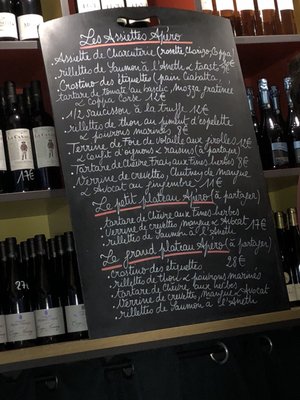 Les Assiettes Apéro
Assiette de Charcuterie (rosette, Chorizo, Coppa)
rillettes de Saumon à l'Aneth & toast 8€
Crostino des étiquettes (pain Ciabatta,
tartare de tomate au basilic, mozza gratinée
& coppa Corse 12€
1/2 saucisson à la truffe 12€
rillettes de thon au piment d'espelette
& poivrons marinés 8€
Terrine de Foie de volaille aux girolles
& confit d'oignons & raisins (à partager) 12€
Tartare de Chèvre frais, aux fines herbes 8€
Verrine de crevettes, Chutney de mangue
& Avocat au gingembre 11€
Le petit plateau Apéro (à partager)
tartare de Chèvre aux fines herbes
Verrine de crevettes, mangue & Avocat 17€
rillettes de Saumon à l'Aneth
Le grand plateau Apéro (à partager)
Crostino des étiquettes 28€
rillettes de thon & poivrons marinés
tartare de Chèvre, aux herbes
Verrine de crevette, mangue & Avocat
rillettes de Saumon à l'Aneth
27€